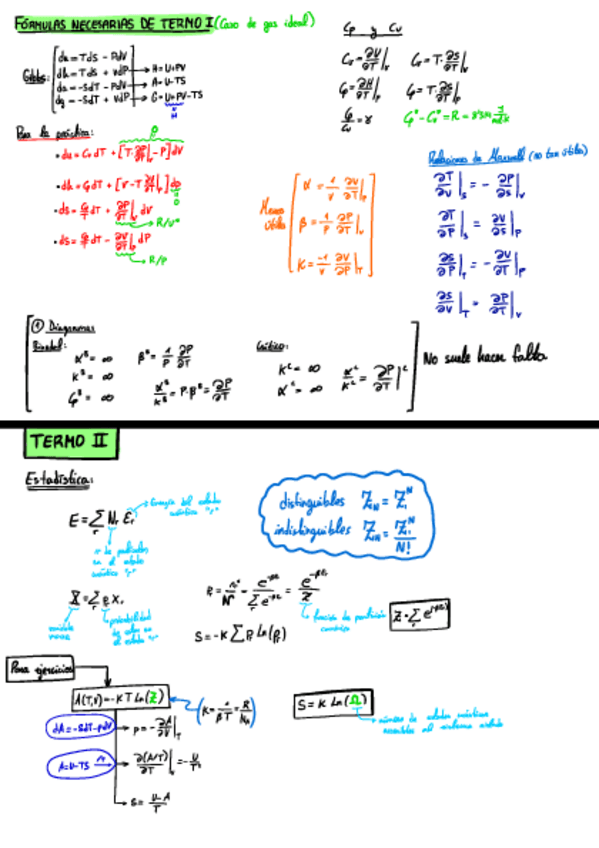 FÓRMULAS NECESARIAS DE TERMO I (Caso de gas ideal)
Gibbs:
du = TdS - PdV
dh = TdS + VdP → H = U+PV
da = -SdT - PdV → A = U-TS
dg = -SdT + VdP → G = U+PV-TS
H
Cp y Cv
Cv = ∂U/∂T|v Cv = T·∂S/∂T|v
Cp = ∂H/∂T|p Cp = T·∂S/∂T|p
Cp/Cv = γ
Para la práctica:
0
• du = CvdT + [T·∂P/∂T|v - P]dV
• dh = CpdT + [V - T ∂V/∂T|p]dp
0
• dS = Cv/T dT + ∂P/∂T|v dV
→ R/V
• dS = Cp/T dT - ∂V/∂T|p dP
→ R/P
Menos útiles
α = 1/V ∂V/∂T|p
β = 1/P ∂P/∂T|v
K = -1/V ∂V/∂P|T
Relaciones de Maxwell (no tan útiles)
∂T/∂V|s = - ∂P/∂S|v
∂T/∂P|s = ∂V/∂S|p
∂S/∂P|T = - ∂V/∂T|p
∂S/∂V|T = ∂P/∂T|v
① Diagramas
Binodal:
α^B = ∞ β^B = 1/P ∂P/∂T
K^B = ∞
Cp^B = ∞ α^B/K^B = P·β^B = ∂P/∂T
Crítico:
K^c = ∞
α^c = ∞ α^c/K^c = ∂P/∂T|^c
No suele hacer falta
TERMO II
Estadística:
E = Σr Nr Er
Energía del estado cuántico "r"
nº de partículas en el estado cuántico "r"
distinguibles Z_N = Z₁^N
indistinguibles Z_N = Z₁^N/N!
X̄ = Σr Pr Xr
probabilidad de estar en el estado "r"
S = -K Σ Pr Ln(Pr)
función de partición canónica
Z = Σr e^(-βEr)
Para ejercicios
A(T,V) = -KT Ln(Z)
(K = 1/βT = R/NA)
S = K Ln(Ω)
número de estados cuánticos accesibles al sistema aislado
dA = -SdT - pdV → p = -∂A/∂V|T
A = U-TS → ∂(A/T)/∂T|v = -U/T²
→ S = U-A/T